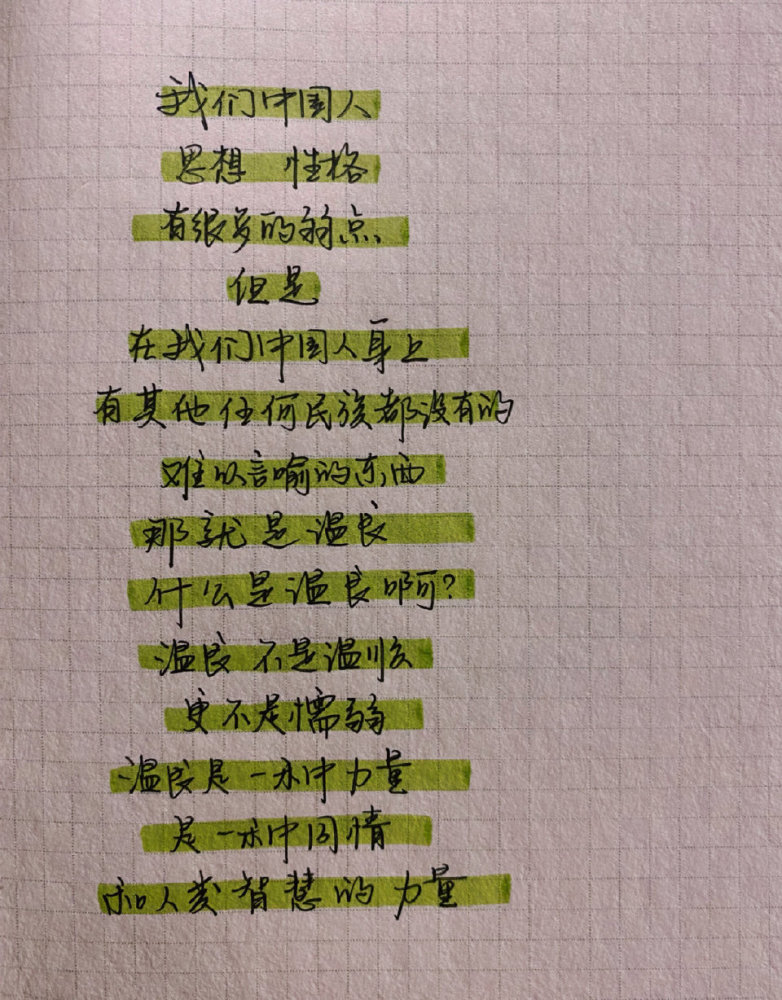 我们中国人
思想 性格
有很多的弱点
但是
在我们中国人身上
有其他任何民族都没有的
难以言喻的东西
那就是温良
什么是温良啊?
温良不是温顺
更不是懦弱
温良是一种力量
是一种同情
和人类智慧的力量